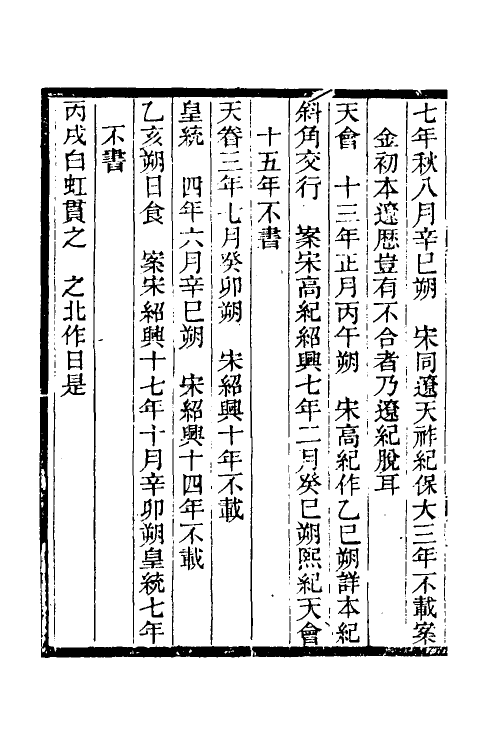 七年秋八月辛巳朔　宋同遼天祚紀保大三年不載案
金初本遼歷豈有不合者乃遼紀脫耳
天會　十三年正月丙午朔　宋高紀作乙巳朔詳本紀
斜角交行　案宋高紀紹興七年二月癸巳朔熙紀天會
十五年不書
天眷三年七月癸卯朔　宋紹興十年不載
皇統　四年六月辛巳朔　宋紹興十四年不載
乙亥朔日食　案宋紹興十七年十月辛卯朔皇統七年
不書
丙戌白虹貫之　之北作日是